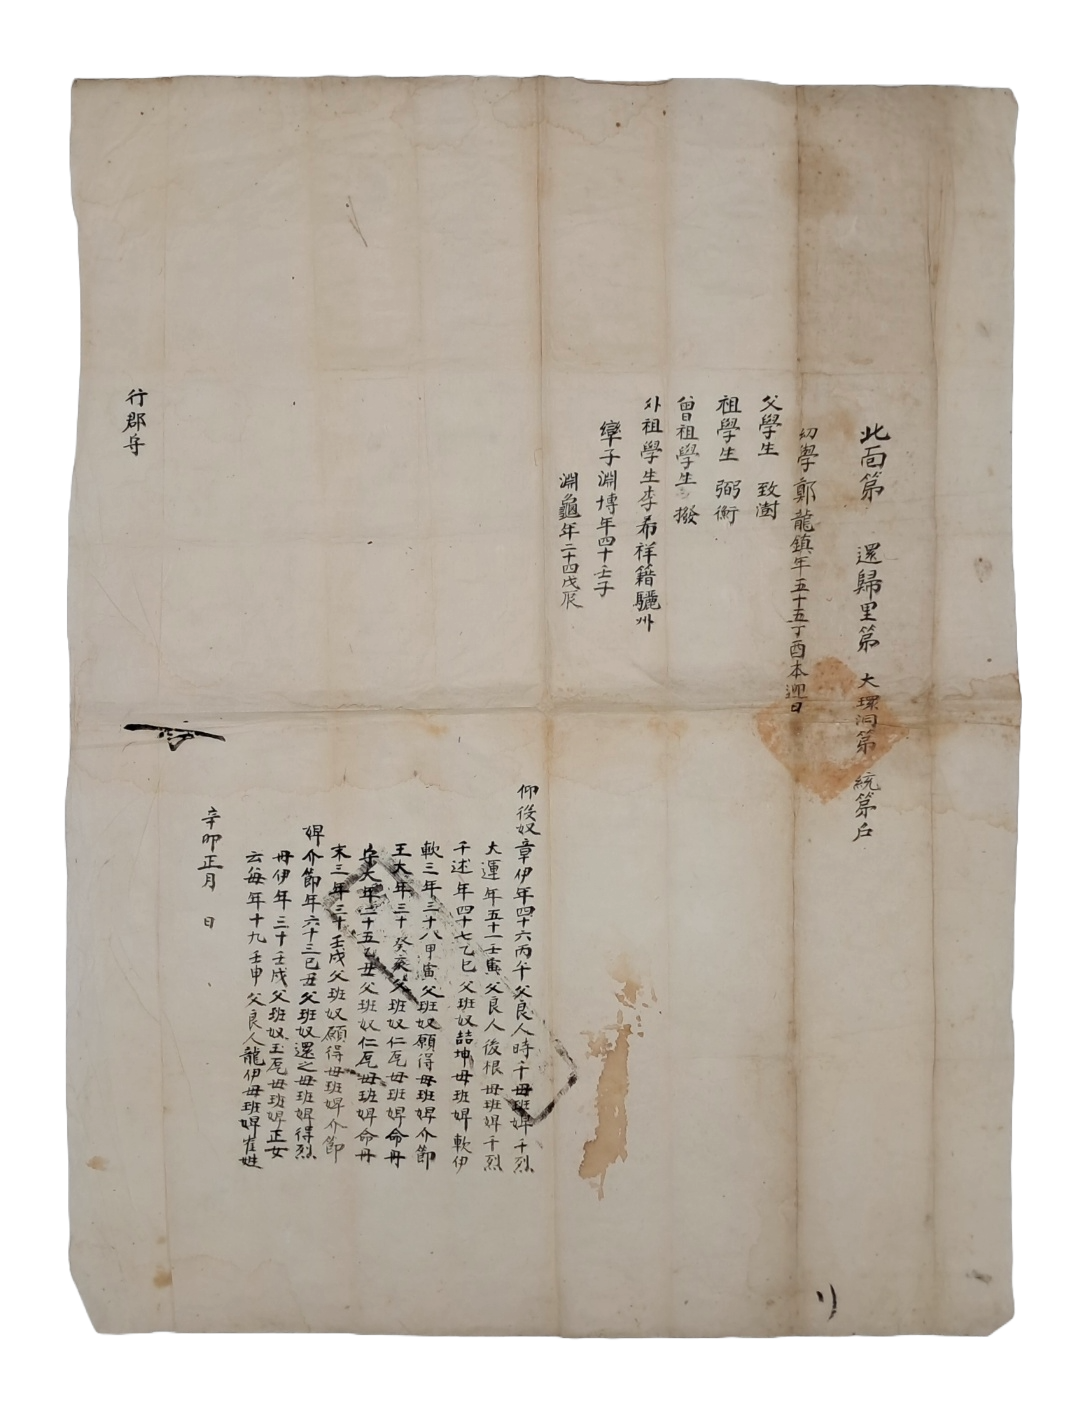 北面第 還歸里第 大環洞第 統第戶
幼學鄭龍鎮年五十五丁酉本迎日
父學生 致澍
祖學生 弼衡
曾祖學生 撥
外祖學生李希祥籍驪州
率子淵博年四十壬子
淵龜年二十四戊辰
仰役奴章伊年四十六丙午父良人時千母班婢千烈
大運年五十一壬寅父良人後根母班婢千烈
千述年四十七乙巳父班奴喆坤母班婢軟伊
軟三年三十八甲寅父班奴願得母班婢介節
王大年三十癸亥父班奴仁厖母班婢命丹
年二十五乙丑父班奴仁厖母班婢命丹
末三年三十壬戌父班奴願得母班婢介節
婢介節年六十三己丑父班奴還之母班婢得烈
丹伊年三十壬戌父班奴玉厖母班婢正女
云每年十九壬申父良人龍伊母班婢崔姓
辛卯正月 日
行郡守